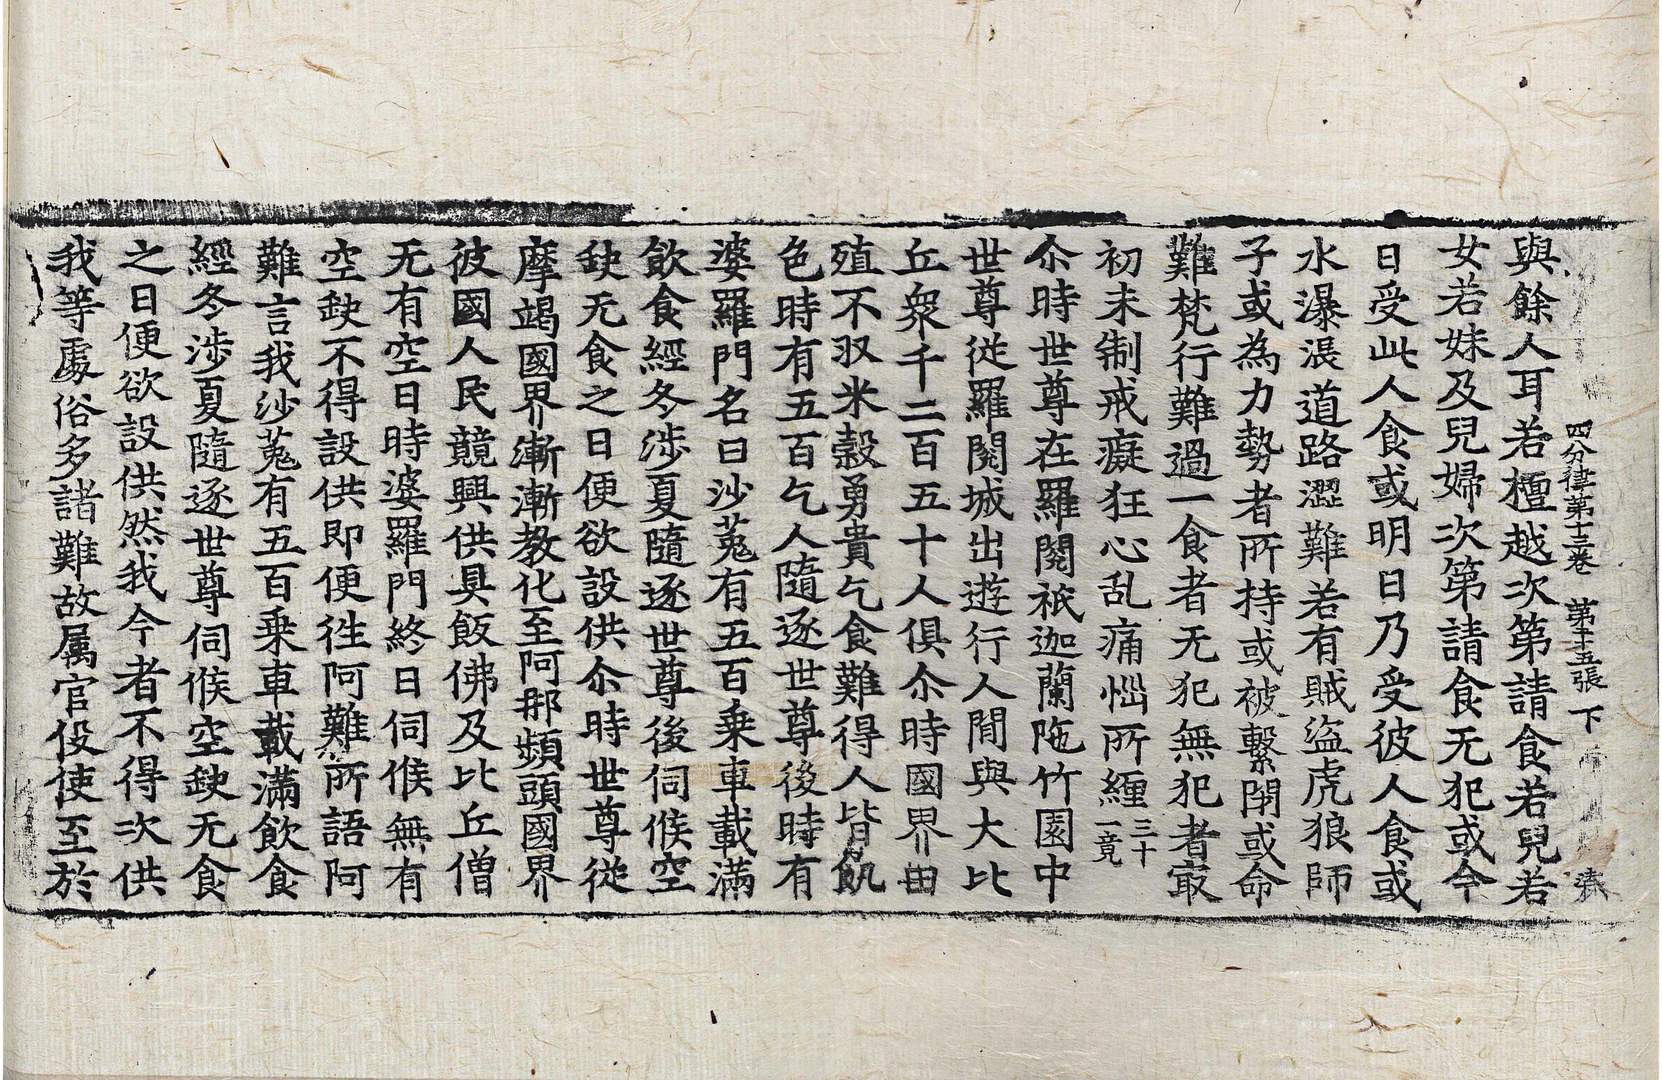 四分律第十三卷 第二十五張 下
與餘人耳若檀越次第請食若兒若
女若妹及兒婦次第請食无犯或今
日受此人食或明日乃受彼人食或
水瀑漲道路澀難若有賊盜虎狼師
子或為力勢者所持或被繫閉或命
難梵行難過一食者无犯無犯者㝡
初未制戒癡狂心乱痛惱所纏三十一竟
尒時世尊在羅閱祇迦蘭陁竹園中
世尊從羅閱城出遊行人間與大比
丘衆千二百五十人俱尒時國界
殖不収米穀勇貴乞食難得人皆飢
色時有五百乞人隨逐世尊後時有
婆羅門名曰沙菟有五百乗車載滿
飲食經冬涉夏隨逐世尊後伺候空
缺无食之日便欲設供尒時世尊從
摩竭國界漸漸教化至阿𨙻頻頭國界
彼國人民競興供具飯佛及比丘僧
无有空日時婆羅門終日伺候無有
空缺不得設供即便往阿難所語阿
難言我沙菟有五百乗車載滿飲食
經冬涉夏隨逐世尊伺候空缺无食
之日便欲設供然我今者不得次供
我等處俗多諸難故属官伇使至於